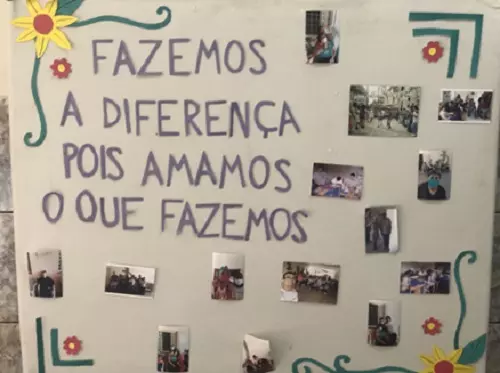 FAZEMOS
A DIFERENÇA
POIS AMAMOS
O QUE FAZEMOS